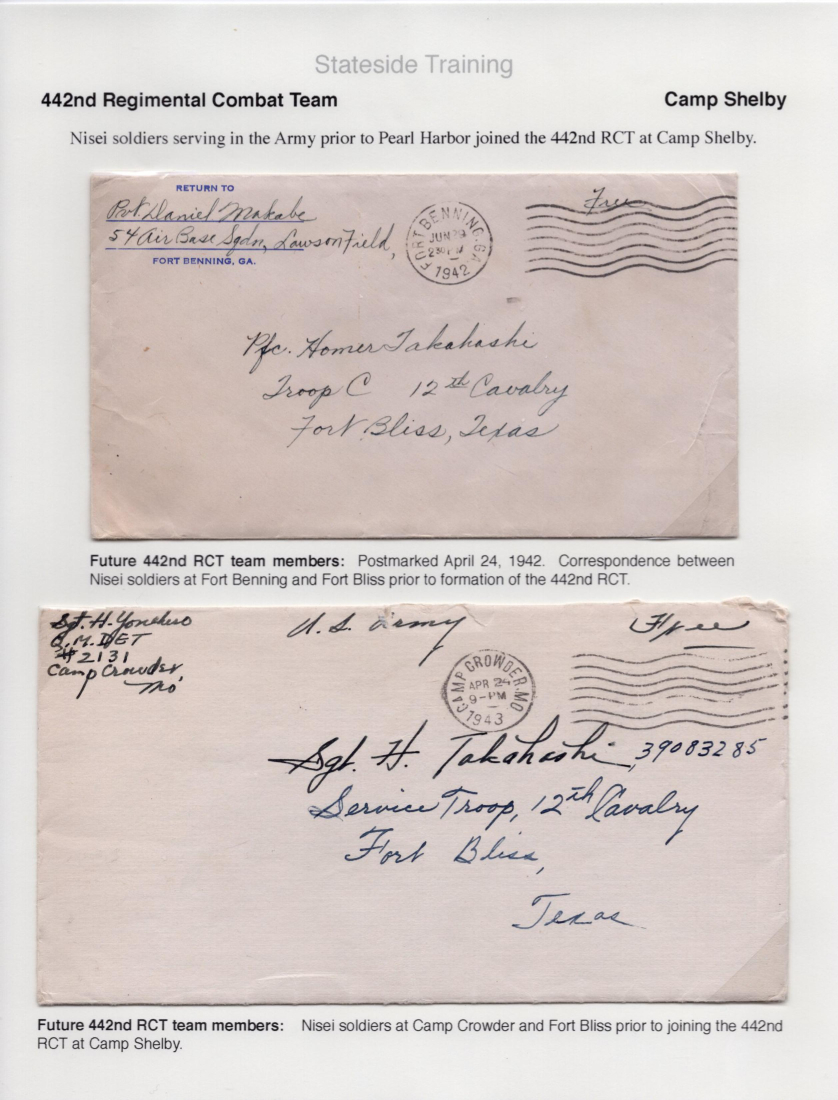 Stateside Training
442nd Regimental Combat Team
Camp Shelby
Nisei soldiers serving in the Army prior to Pearl Harbor joined the 442nd RCT at Camp Shelby.
RETURN TO
Pvt Daniel Makabe
54 Air Base Sqdn, Lawson Field,
FORT BENNING, GA.
FORT BENNING, GA
JUN 29
2 30 PM
1942
Free
Pfc. Homer Takahashi
Troop C 12th Cavalry
Fort Bliss, Texas
Future 442nd RCT team members: Postmarked April 24, 1942. Correspondence between
Nisei soldiers at Fort Benning and Fort Bliss prior to formation of the 442nd RCT.
Sgt. H. Yonekuo
Q.M. DET
#2131
Camp Crowder,
Mo,
U. S. Army
Free
CAMP CROWDER, MO
APR 24
9-PM
1943
Sgt. H. Takahashi, 39083285
Service Troop, 12th Cavalry
Fort Bliss,
Texas
Future 442nd RCT team members: Nisei soldiers at Camp Crowder and Fort Bliss prior to joining the 442nd
RCT at Camp Shelby.